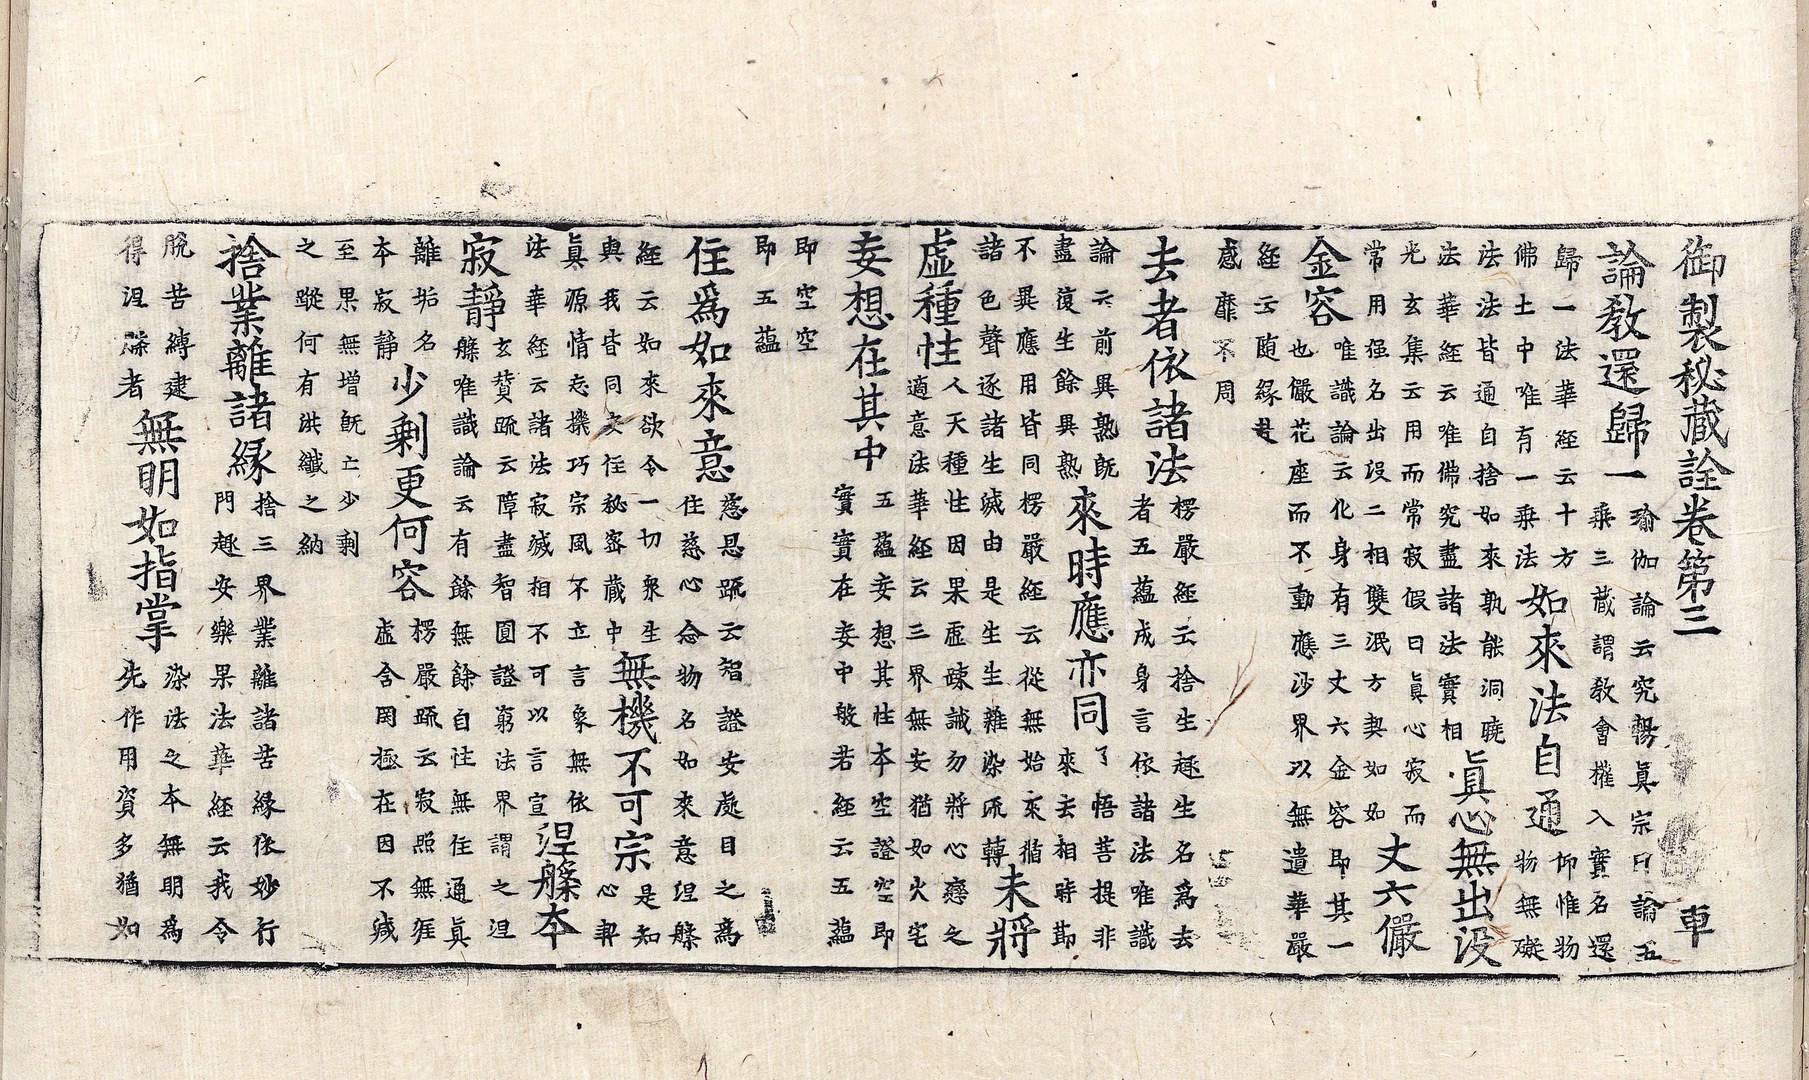 御製秘蔵詮卷第三　車
論教還歸一
瑜伽論云究暢眞宗曰論五
乘三蔵謂教會權入實名還
歸一法華經云十方
佛土中唯有一乘法
如來法自通
仰惟物
物無礙
法法皆通自捨如來孰能洞曉
法華經云唯佛究盡諸法實相
眞心無出没
光玄集云用而常寂假曰眞心寂而
常用强名出没二相雙泯方契如如
丈六儼
金容
唯識論云化身有三丈六金容即其一
也儼花座而不動應沙界以無遺華嚴
經云随緣赴
感靡不周
去者依諸法
楞嚴經云捨生趣生名爲去
者五蘊成身言依諸法唯識
論云前異熟既
盡復生餘異熟
來時應亦同
了悟菩提非
來去相時節
不異應用皆同楞嚴經云從無始來循
諸色聲逐諸生滅由是生生雜染流轉
未將
虛種性
人天種性因果虛疎誡勿將心戀之
適意法華經云三界無安猶如火宅
妄想在其中
五蘊妄想其性本空證空即
實實在妄中般若經云五蘊
即空空
即五蘊
住爲如來意
慈恩䟽云智證安處目之爲
住慈心念物名如來意涅槃
經云如來欲令一切衆生
與我皆同文住秘密蔵中
無機不可宗
是知
心契
眞源情忘機巧宗風不立言象無依
法華經云諸法寂滅相不可以言宣
涅槃本
寂靜
玄賛䟽云障盡智圓證窮法界謂之涅
槃唯識論云有餘無餘自性無住通眞
離垢名
本寂静
少剩更何容
楞嚴䟽云寂照無涯
虚含罔極在因不減
至果無增既亡少剩
之蹤何有洪纖之納
捨業離諸緣
捨三界業離諸苦緣依妙行
門趣安樂果法華經云我令
脫苦縛逮
得涅槃者
無明如指掌
染法之本無明爲
先作用資多猶如